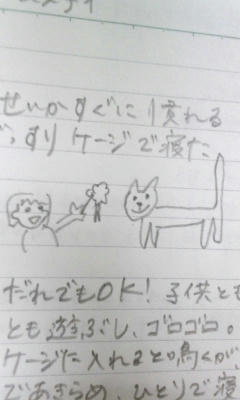 せいかすぐに慣れる
ぐっすりケージで寝た
だれでもOK! 子供とも
とも遊ぶし、ゴロゴロ。
ケージに入れると鳴くが、
であきらめ、ひとりで寝